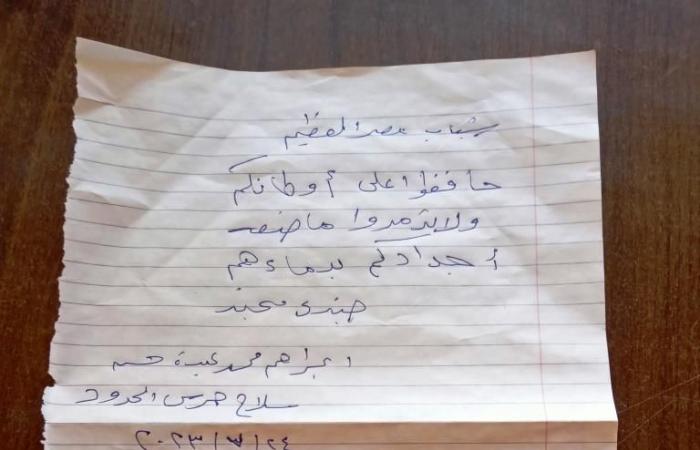 شباب مصر العظيم
حافظوا على أوطانكم
ولا تدمروا ما صنعه
أجدادكم بدماءهم
جندى مجند
ابراهيم محمد عبدة حسن
سلاح حرس الحدود
٢٤/ /٢٠٢٣